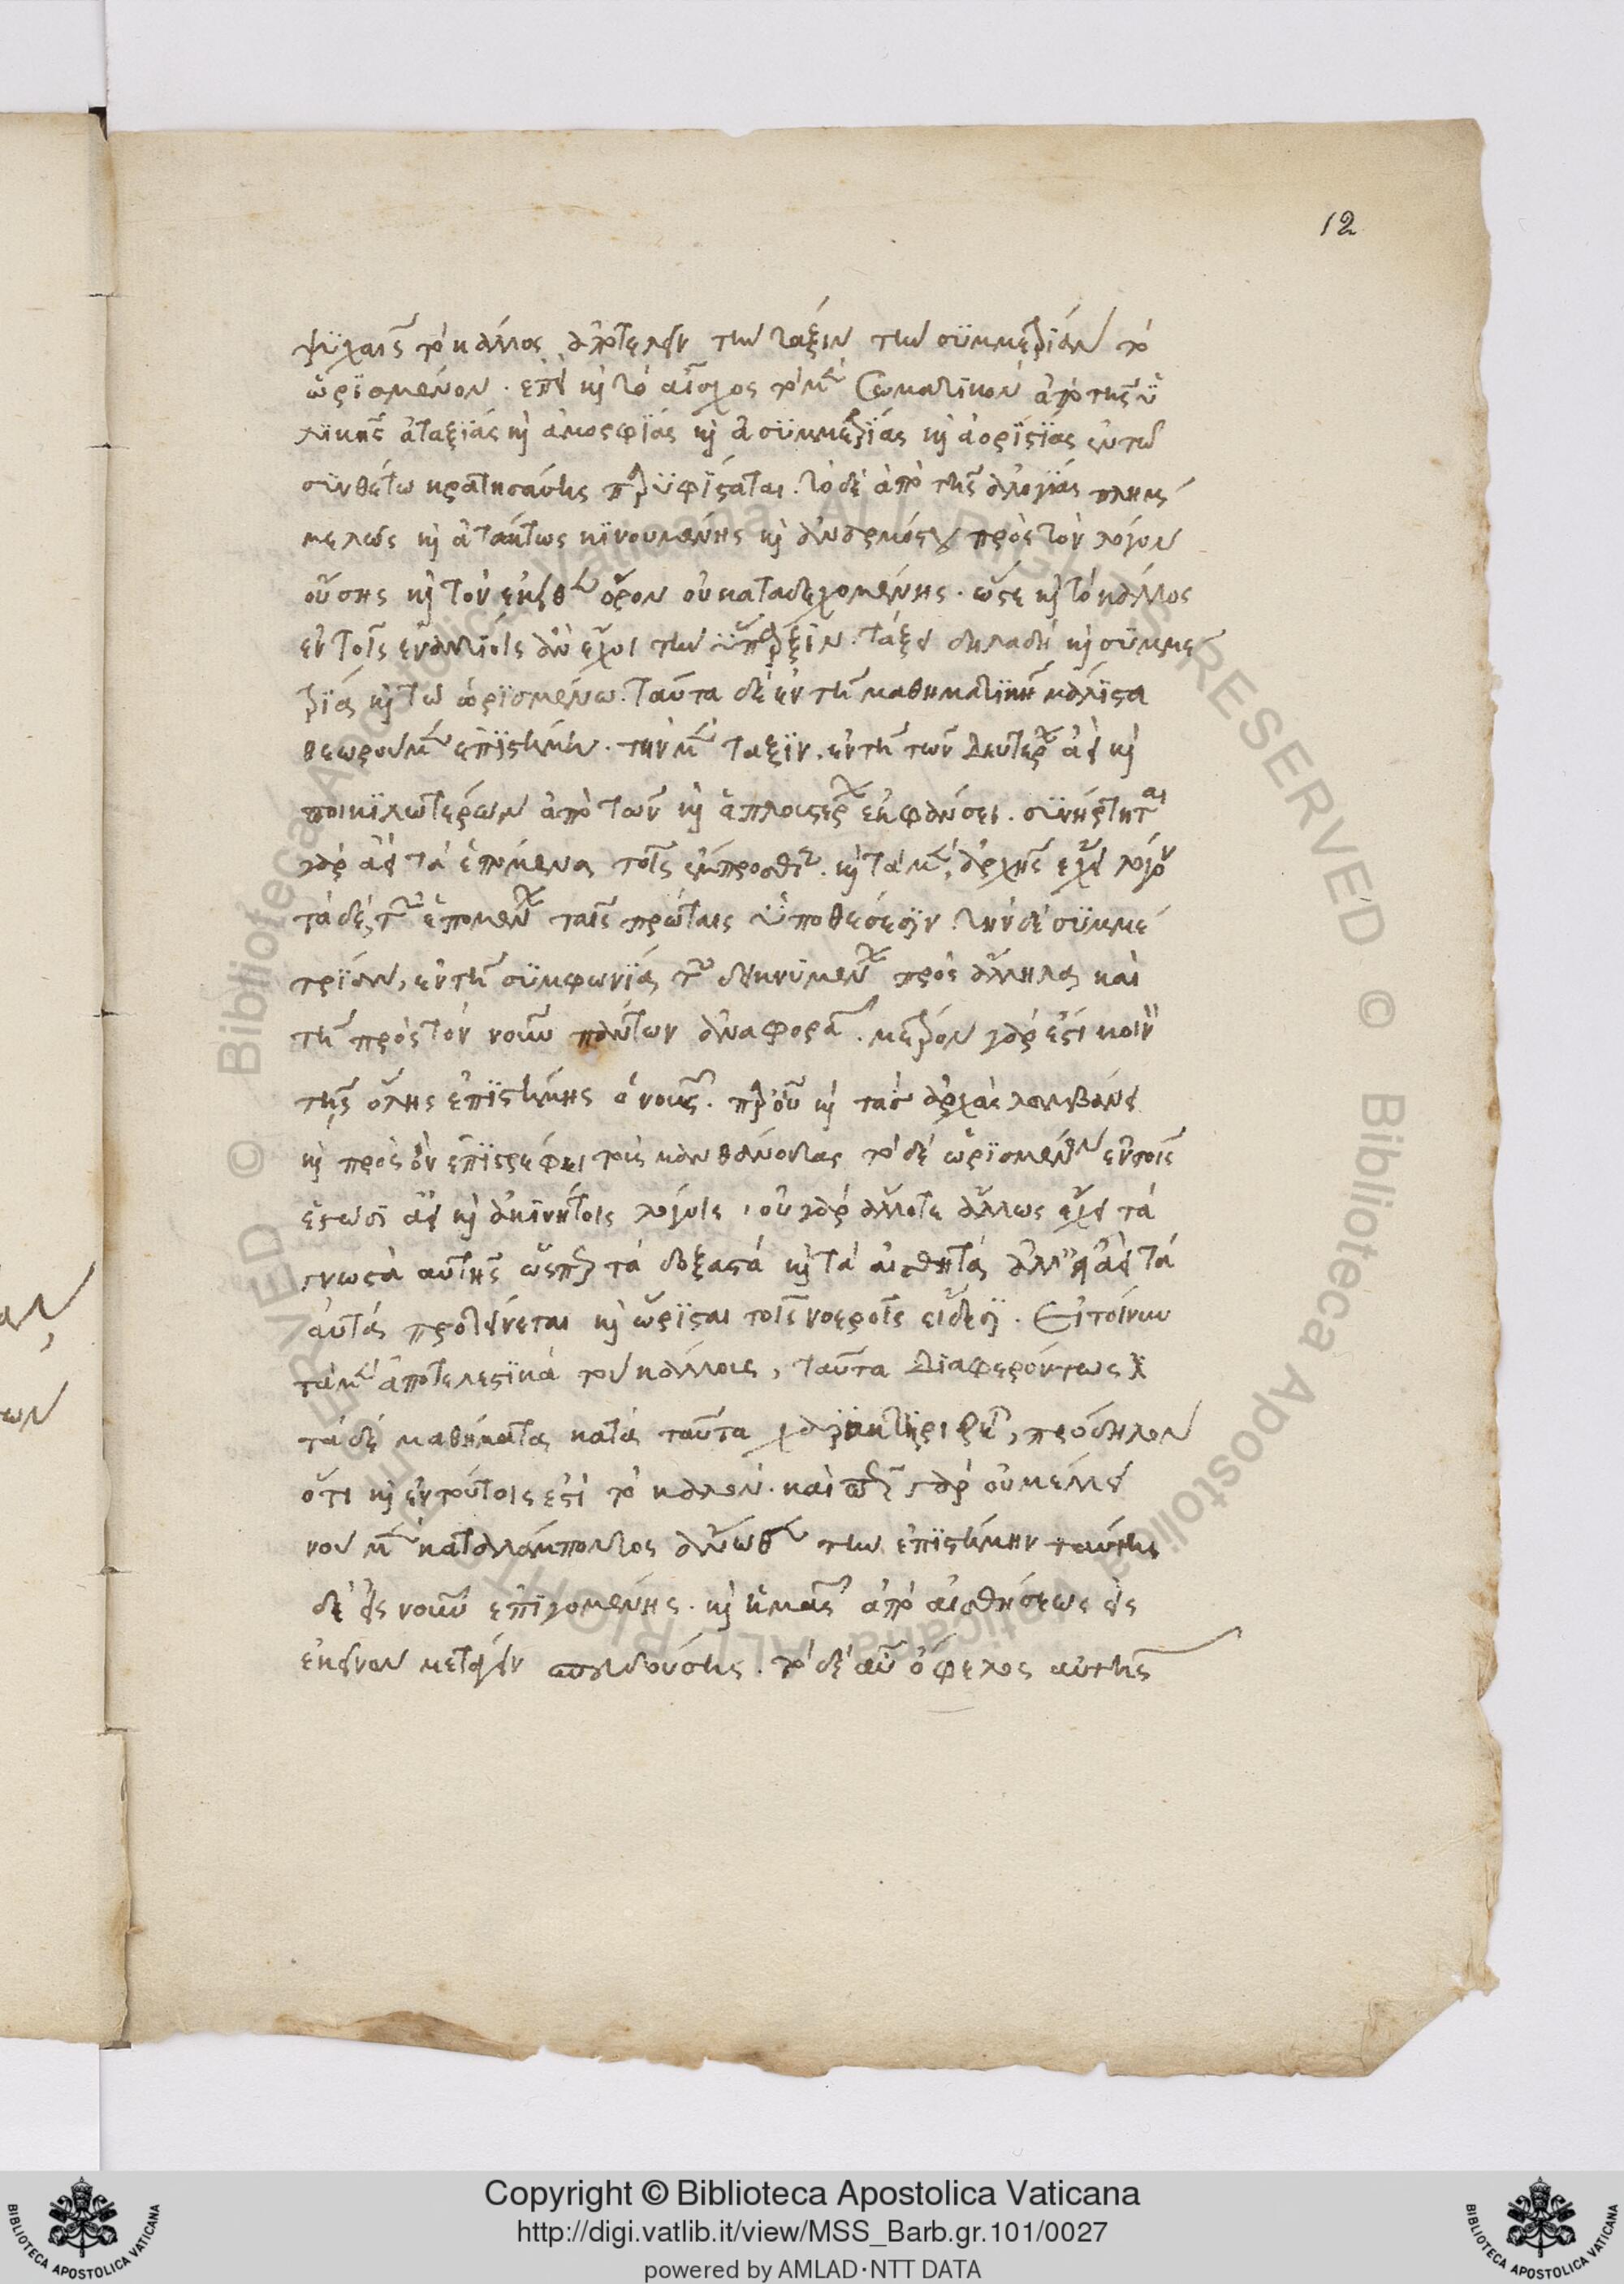 12
ψϋχαῖς τὸ κάλλος ἀποτελεῖν τὴν τάξιν τὴν σϋμμετρίαν τὸ
ὡρϊσμένον. ἐπεὶ καὶ τὸ αἶσχος τὸ μὲν σωματικὸν ἀπὸ τῆς ὑ
λικῆς ἀταξίας καὶ ἀμορφίας καὶ ἀσϋμμετρίας καὶ ἀορϊστίας ἐν τῶ
συνθέτω κρατησάσης παρϋφίσταται. τὸ δὲ ἀπὸ τῆς ἀλογίας πλημ
μελῶς καὶ ἀτάκτως κϊνουμένης καὶ ἀναρμόστου πρὸς τὸν λόγον
οὔσης καὶ τὸν ἐκεῖθεν ὅρον οὐ καταδεχομένης. ὥστε καὶ τὸ κάλλος
ἐν τοῖς ἐναντίοις ἂν ἔχοι τὴν ὕπαρξιν. τάξει δηλαδὴ καὶ σϋμμε
τρία καὶ τῶ ὡρϊσμένω. ταῦτα δὲ ἐν τῆ μαθηματϊκῆ μάλιστα
θεωροῦμεν ἐπϊστήμη. τὴν μὲν τάξϊν. ἐν τῆ τῶν δευτέρων ἀεὶ καὶ
ποικϊλωτέρων ἀπὸ τῶν καὶ ἁπλουστέρων ἐκφάνσει. συνήρτηται
γὰρ ἀεὶ τὰ ἑπόμενα τοῖς ἔμπροσθεν. καὶ τὰ μὲν, ἀρχῆς ἔχει λόγον
τὰ δὲ, τῶν ἑπομένων ταῖς πρώταις ὑποθέσεσϊν. τὴν δὲ σϋμμε
τρίαν, ἐν τῆ σϋμφωνία τῶν δεικνυμένων πρὸς ἄλληλα καὶ
τῆ πρὸς τὸν νοῦν πάντων ἀναφορᾶ. μέτρον γάρ ἐστι κοινὸν
τῆς ὅλης ἐπϊστήμης ὁ νοῦς. παρ' οὗ καὶ τὰς ἀρχὰς λαμβάνει
καὶ πρὸς ὃν ἐπϊστρέφει τοὺς μανθάνοντας τὸ δὲ ὡρϊσμένον ἐν τοῖς
ἑστῶσϊ ἀεὶ καὶ ἀκινήτοις λόγοις. οὐ γὰρ ἄλλοτε ἄλλως ἔχει τὰ
γνωστὰ αὐτῆς ὥσπερ τὰ δοξαστὰ καὶ τὰ αἰσθητὰ ἀλλ' ἀεὶ τὰ
αὐτὰ προτείνεται καὶ ὥρϊσται τοῖς νοεροῖς εἴδεσϊ. Εἰ τοίνυν
τὰ μὲν ἀποτελεστϊκὰ τοῦ κάλλους, ταῦτα διαφερόντως
τὰ δὲ μαθήματα κατὰ ταῦτα χαρακτηρίζεται, πρόδηλον
ὅτι καὶ ἐν τούτοις ἐστὶ τὸ καλόν. καὶ πῶς γὰρ οὐ μέλλει
νοῦ μὲν καταλάμποντος ἄνωθεν τὴν ἐπϊστήμην ταύτης
δὲ εἰς νοῦν ἐπειγομένης. καὶ ἡμᾶς ἀπὸ αἰσθήσεως εἰς
ἐκεῖνον μετάγειν σπευδούσης. τὸ δὲ αὖ ὄφελος αὐτῆς
Copyright © Biblioteca Apostolica Vaticana
http://digi.vatlib.it/view/MSS_Barb.gr.101/0027
powered by AMLAD·NTT DATA